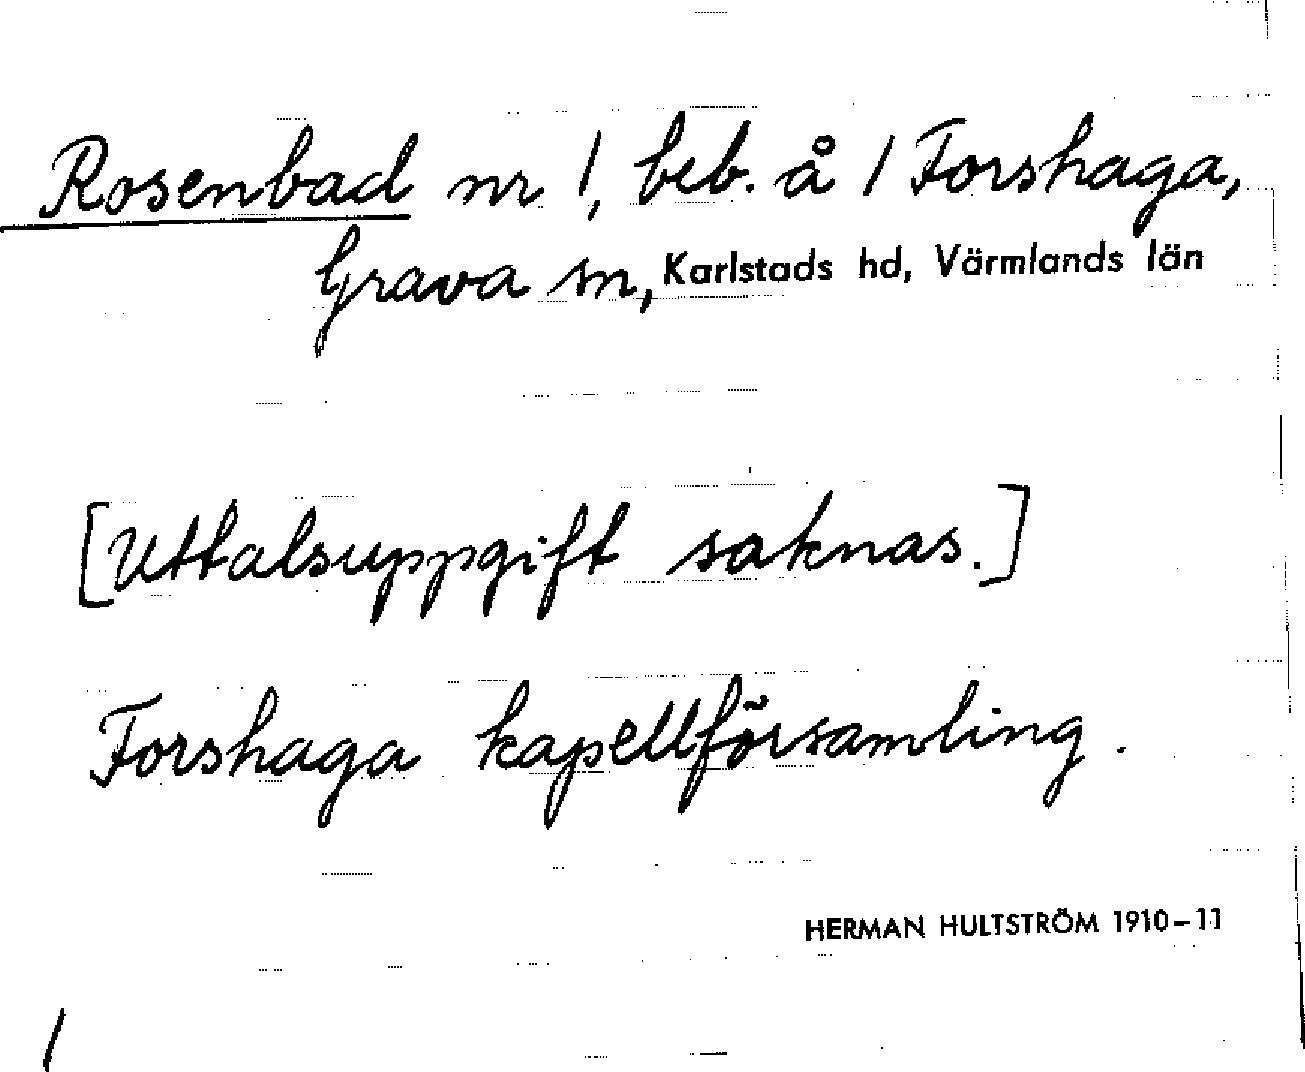 Rosenbad nr 1, beb. å 1 Forshaga,
Grava sn, Karlstads hd, Värmlands län
[Uttalsuppgift saknas.]
Forshaga kapellförsamling.
HERMAN HULTSTRÖM 1910-11
/